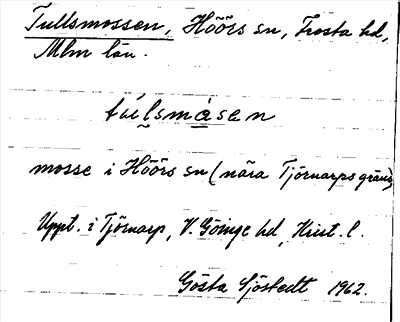 Tullsmossen, Höörs sn, Frosta hd,
Mlm län.
túlsmàsen
mosse i Höörs sn (nära Tjörnarps gräns)
Uppt. i Tjörnarp, V. Göinge hd, Krist. l.
Gösta Sjöstedt 1962.